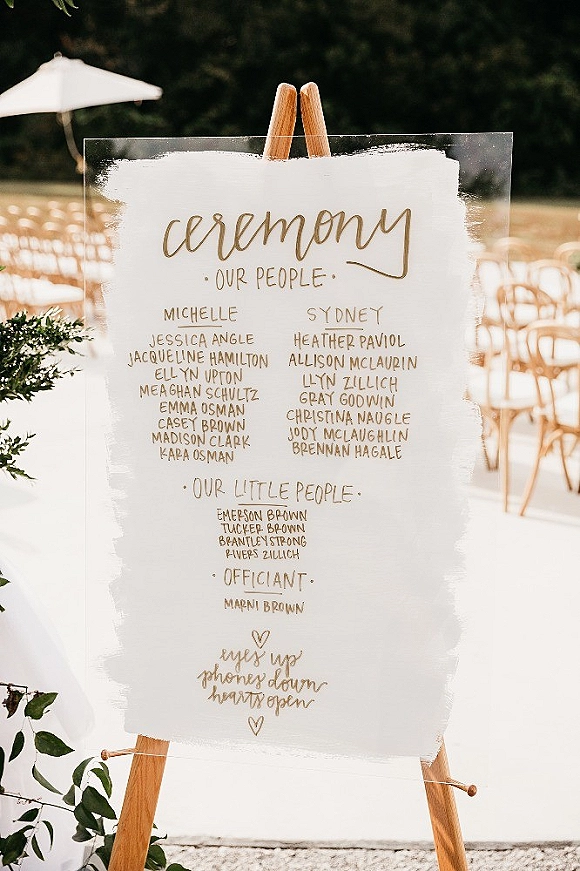 ceremony
· OUR PEOPLE ·
MICHELLE
JESSICA ANGLE
JACQUELINE HAMILTON
ELLYN UPTON
MEAGHAN SCHULTZ
EMMA OSMAN
CASEY BROWN
MADISON CLARK
KARA OSMAN
SYDNEY
HEATHER PAVIOL
ALLISON MCLAURIN
LLYN ZILLICH
GRAY GODWIN
CHRISTINA NAUGLE
JODY MCLAUGHLIN
BRENNAN HAGALE
· OUR LITTLE PEOPLE ·
EMERSON BROWN
TUCKER BROWN
BRANTLEY STRONG
RIVERS ZILLICH
· OFFICIANT ·
MARNI BROWN
eyes up
phones down
hearts open